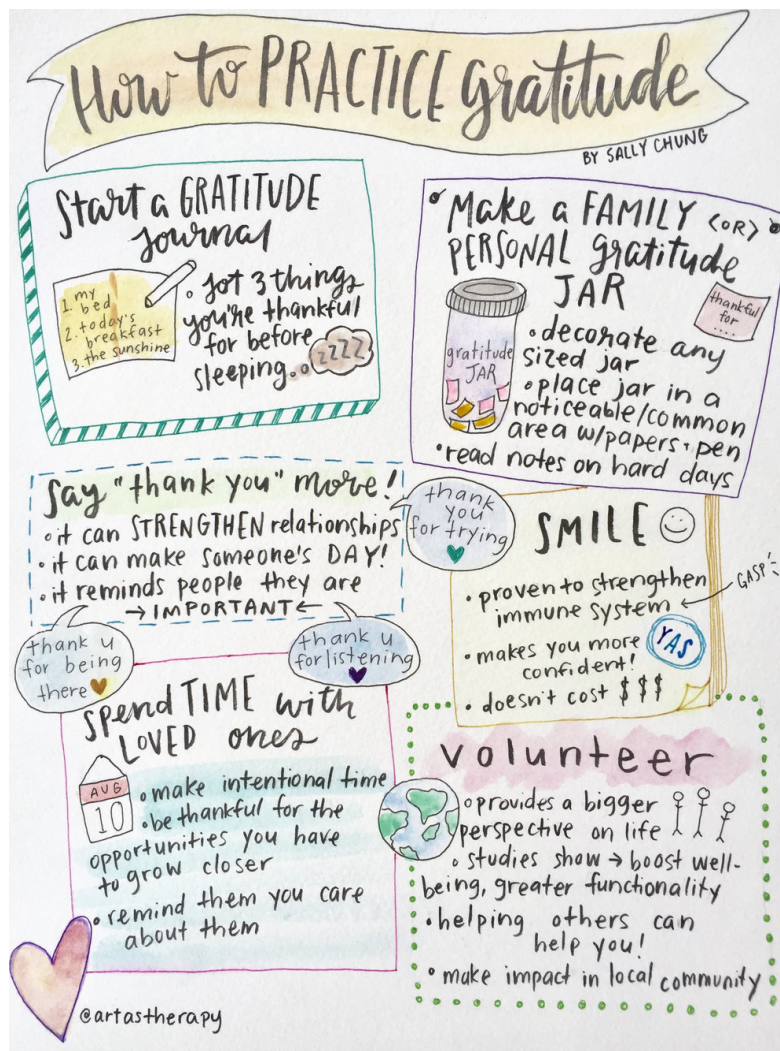 How to PRACTICE gratitude
BY SALLY CHUNG
Start a GRATITUDE
journal
1. my
bed
2. today's
breakfast
3. the sunshine
• jot 3 things
you're thankful
for before
sleeping.
zzzz
Make a FAMILY <OR>
PERSONAL gratitude
JAR
thankful
for
....
gratitude
JAR
• decorate any
sized jar
• place jar in a
noticeable/common
area w/papers + pen
• read notes on hard days
Say "thank you" more!
• it can STRENGTHEN relationships
• it can make someone's DAY!
• it reminds people they are
→ IMPORTANT ←
thank
you
for trying
thank u
for being
there
thank u
for listening
SMILE
• proven to strengthen
immune system ← GASP
• makes you more
confident!
YAS
• doesn't cost $$$
spend TIME with
LOVED ones
AUG
10
• make intentional time
• be thankful for the
opportunities you have
to grow closer
• remind them you care
about them
volunteer
• provides a bigger
perspective on life
• studies show → boost well-
being, greater functionality
• helping others can
help you!
• make impact in local community
@artastherapy